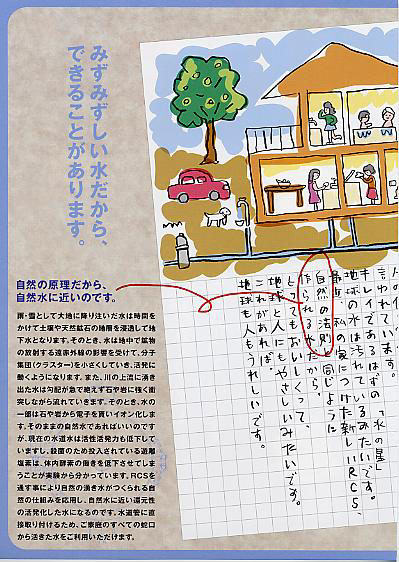 みずみずしい水だから、
できることがあります。
自然の原理だから、
自然水に近いのです。
雨・雪として大地に降り注いだ水は時間を
かけて土壌や天然鉱石の地層を浸透して地
下水となります。そのとき、水は地中で鉱物
の放射する遠赤外線の影響を受けて、分子
集団(クラスター)を小さくしていき、活発に
働くようになります。また、川の上流に湧き
出た水は勾配が急で絶えず石や岩に強く衝
突しながら流れていきます。そのとき、水の
一部は石や岩から電子を貰いイオン化しま
す。そのままの自然水であればいいのです
が、現在の水道水は活性活発力も低下して
いますし、殺菌のため投入されている遊離
塩素は、体内酵素の働きを低下させてしま
うことが実験から分かっています。RCSを
通す事により自然の湧き水がつくられる自
然の仕組みを応用し、自然水に近い還元性
の活発化した水になるのです。水道管に直
接取り付けるため、ご家庭のすべての蛇口
から活きた水をご利用いただけます。
言われています。「水の星」
キレイであるはずの
地球の水は汚れているみたいです。
最近、私の家につけた新しいRCS、
自然の法則と同じように
作られる水だから、
とってもおいしくって、
地球と人にもやさしいみたいです。
これがあれば、
地球も人もうれしいです。